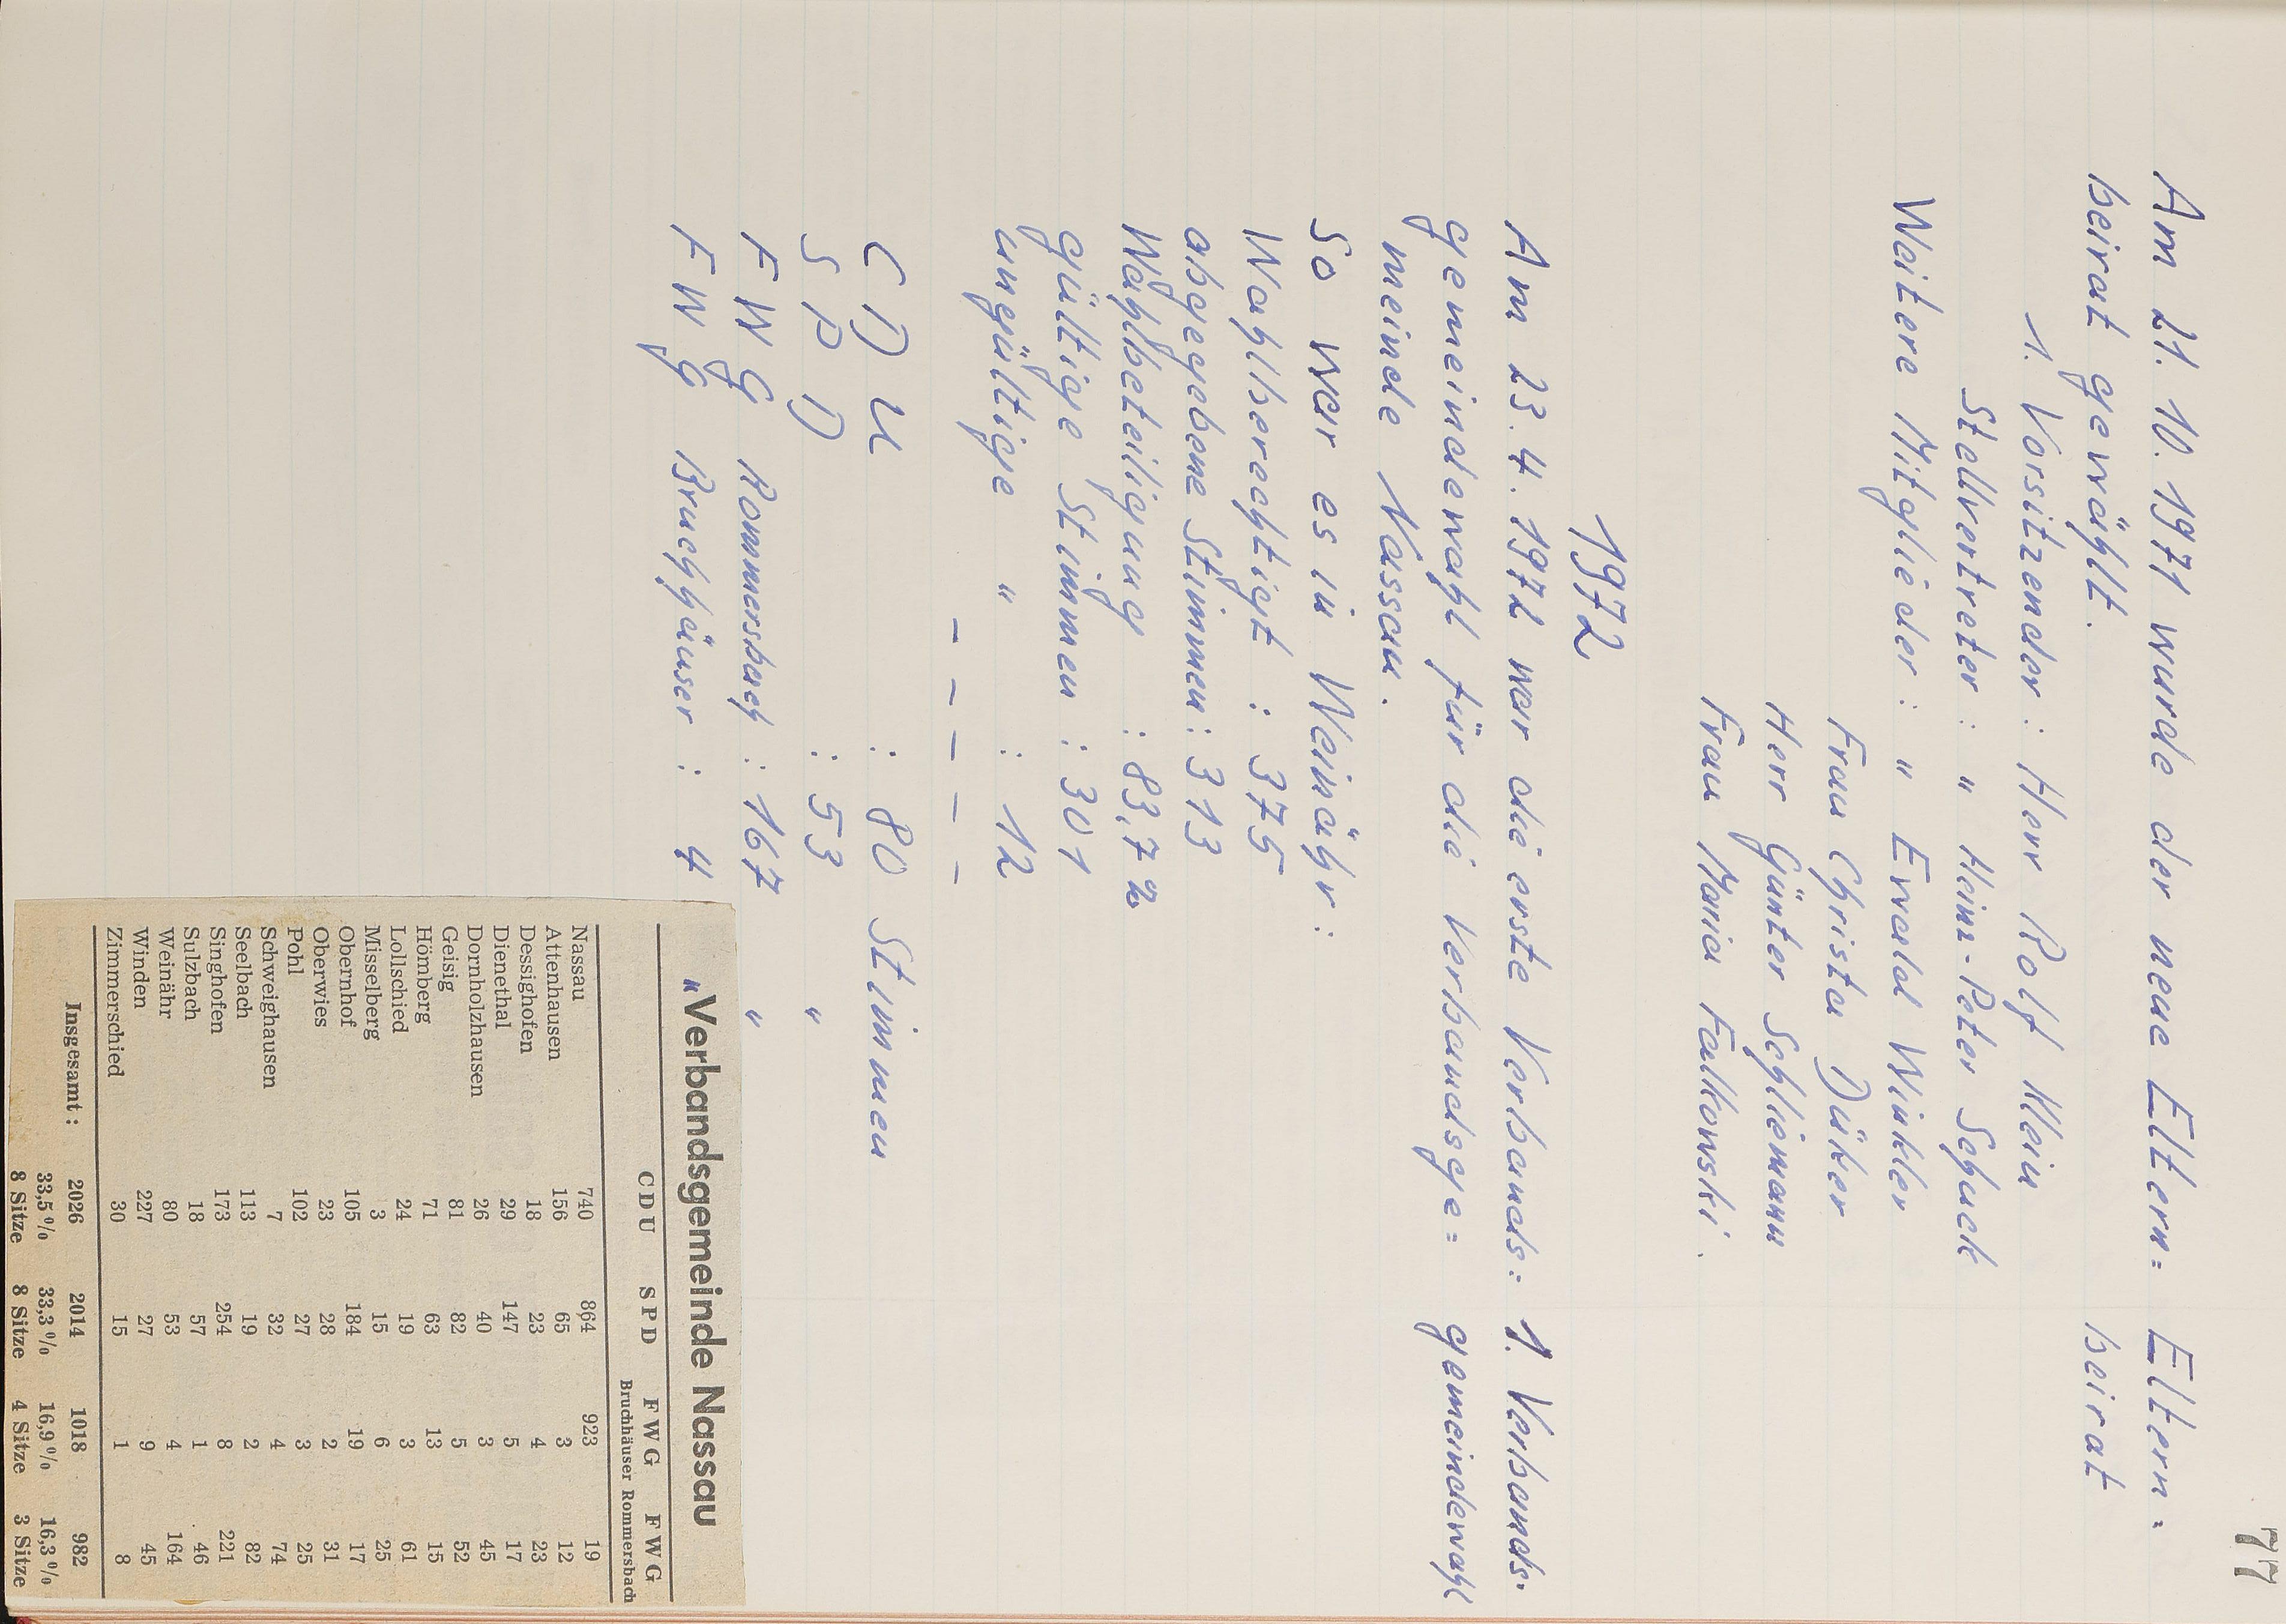 77
Am 21. 10. 1971 wurde der neue Eltern=
beirat gewählt.
Eltern=
beirat
1. Vorsitzender : Herr Rolf Klein
Stellvertreter : " Heinz-Peter Schuck
Weitere Mitglieder : " Ewald Winkler
Frau Christa Düker
Herr Günter Schliemann
Frau Maria Falkowski.
1972
Am 23. 4. 1972 war die erste Verbands=
gemeindewahl für die Verbandsge=
meinde Nassau.
1. Verbands=
gemeindewahl
So war es in Weinähr :
Wahlberechtigt : 375
abgegebene Stimmen : 313
Wahlbeteiligung : 83,7 %
gültige Stimmen : 301
ungültige " : 12
- - - - -
C D U : 80 Stimmen
S P D : 53 "
F W G Rommersbach : 167 "
F W G Bruchhäuser : 4 "
Verbandsgemeinde Nassau
CDU SPD FWG FWG
Bruchhäuser Rommersbach
Nassau 740 864 923 19
Attenhausen 156 65 3 12
Dessighofen 18 23 4 23
Dienethal 29 147 5 17
Dornholzhausen 26 40 3 45
Geisig 81 82 5 52
Hömberg 71 63 13 15
Lollschied 24 19 3 61
Misselberg 3 15 6 25
Obernhof 105 184 19 17
Oberwies 23 28 2 31
Pohl 102 27 3 25
Schweighausen 7 32 4 74
Seelbach 113 19 2 82
Singhofen 173 254 8 221
Sulzbach 18 57 1 46
Weinähr 80 53 4 164
Winden 227 27 9 45
Zimmerschied 30 15 1 8
Insgesamt : 2026 2014 1018 982
33,5 % 33,3 % 16,9 % 16,3 %
8 Sitze 8 Sitze 4 Sitze 3 Sitze